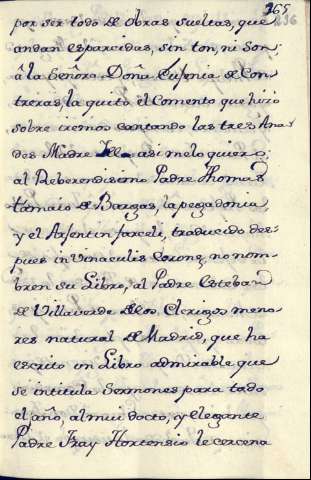 265
236
por ser todo de obras sueltas, que
andan esparcidas, sin ton, ni son,
â la Señora Doña Eufenia de Con-
treras, la quita el Comento que hizo
sobre iremos cantando las tres Ana-
des Madre asi melo quiero;
al Reberendisimo Padre Thomas
tamaio de Bargas, la pegadonia
y el Arsentin farceli, traducido des-
pues in vinaculis Corone, no nom-
bren su Libro, al Padre Esteban
de Villaverde de los Clerigos meno-
res natural de Madrid, que ha
escrito un Libro admirable que
se intitula Sermones para todo
el año, al mui docto, y elegante
Padre Fray Hortensio le cercena